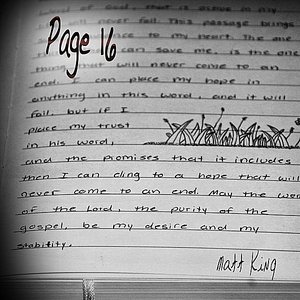 Page 16
word of God, that is alive in my
will never fail. This passage brings
peace to my heart. The one
that can save me, is the one
thing that will never come to an
end. I can place my hope in
anything in this word, and it will
fail, but if I
place my trust
in his word,
and the promises that it includes
then I can cling to a hope that will
never come to an end. May the word
of the Lord, the purity of the
gospel, be my desire and my
stability.
Matt King